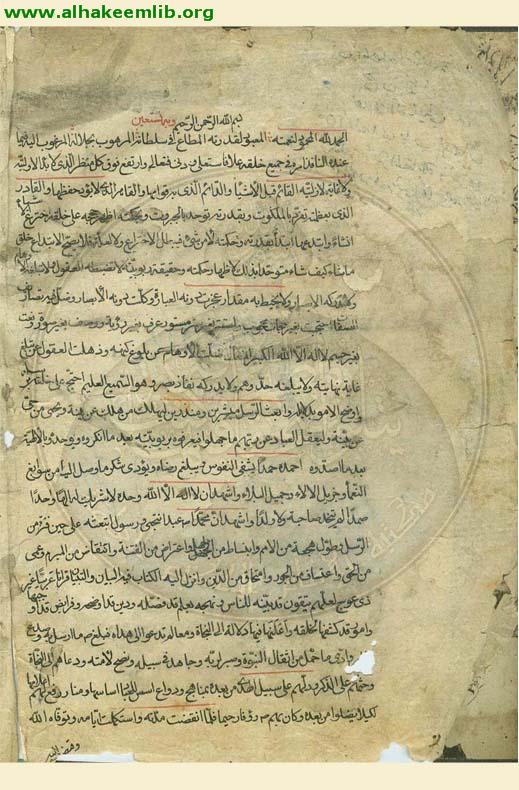 www.alhakeemlib.org
بسم الله الرحمن الرحيم وبه استعين
الحمد لله المحمود لنعمته المعبود لقدرته المطاع في سلطانه المرهوب بجلاله المرغوب اليه فيما
عنده النافذ امره في جميع خلقه علا فاستعلى ودنى فتعالى وارتفع فوق كل منظر الذي لا بدء لاوليته
ولا غاية لازليته القائم قبل الاشياء والدائم الذي به قوامها والقاهر الذي لا يؤده حفظها والقادر
الذي بعظمته تفرد بالملكوت وبقدرته توحد بالجبروت وبحكمته اظهر حججه على خلقه اخترع الاشياء
انشاء وابتدعها ابتداء بقدرته وحكمته لا من شئ فيبطل الاختراع ولا لعلة فلا يصح الابتداع خلق
ما شاء كيف شاء متوحدا بذلك لاظهار حكمته وحقيقة ربوبيته لا تضبطه العقول ولا تبلغه الاوهام
ولا تدركه الابصار ولا يحيط به مقدار عجزت دونه العبارة وكلت دونه الابصار وضل فيه تصاريف
الصفات احتجب بغير حجاب محجوب واستتر بغير ستر مستور عرف بغير رؤية ووصف بغير صورة ونعت
بغير جسم لا اله الا الله الكبير المتعال ضلت الاوهام عن بلوغ كنهه وذهلت العقول ان تبلغ
غاية نهايته ولا يبلغه حد وهم ولا يدركه نفاذ بصر وهو السميع العليم احتج على خلقه برسله
واوضح الامور بدلائله وابتعث الرسل مبشرين ومنذرين ليهلك من هلك عن بينة ويحيى من حي
عن بينة وليعقل العباد عن ربهم ما جهلوا فيعرفوه بربوبيته بعد ما انكروه ويوحدوه بالالهية
بعد ما اضدوه احمده حمدا يشفي النفوس ويبلغ رضاه ويؤدي شكر ما وصل الينا من سوابغ
النعماء وجزيل الالاء وجميل البلاء واشهد ان لا اله الا الله وحده لا شريك له الها واحدا
صمدا لم يتخذ صاحبة ولا ولدا واشهد ان محمدا عبده انتجبه ورسول ابتعثه على حين فترة من
الرسل وطول هجعة من الامم وانبساط من الجهل واعتراض من الفتنة وانتقاض من المبرم وعمى
من الحق واعتساف من الجور وامتحاق من الدين وانزل اليه الكتاب فيه البيان والتبيان قرانا عربيا غير
ذي عوج لعلهم يتقون قد بينه للناس ونهجه بعلم قد فصله ودين قد اوضحه وفرائض قد اوجبها
وامور قد كشفها لخلقه واعلنها فيها دلالة الى النجاة ومعالم تدعو الى هداه فبلغ ما ارسل به وصدع
وادى ما حمل من اثقال النبوة وصبر لربه وجاهد في سبيله ونصح لامته ودعاهم الى النجاة
وحثهم على الذكر ودلهم على سبيل الهدى من بعده بمناهج ودواع اسس للعباد اساسها ومنار رفع لهم اعلامها
لكيلا يضلوا من بعده وكان بهم رؤفا رحيما فلما انقضت مدته واستكملت ايامه وتوفاه الله
وقبضه اليه